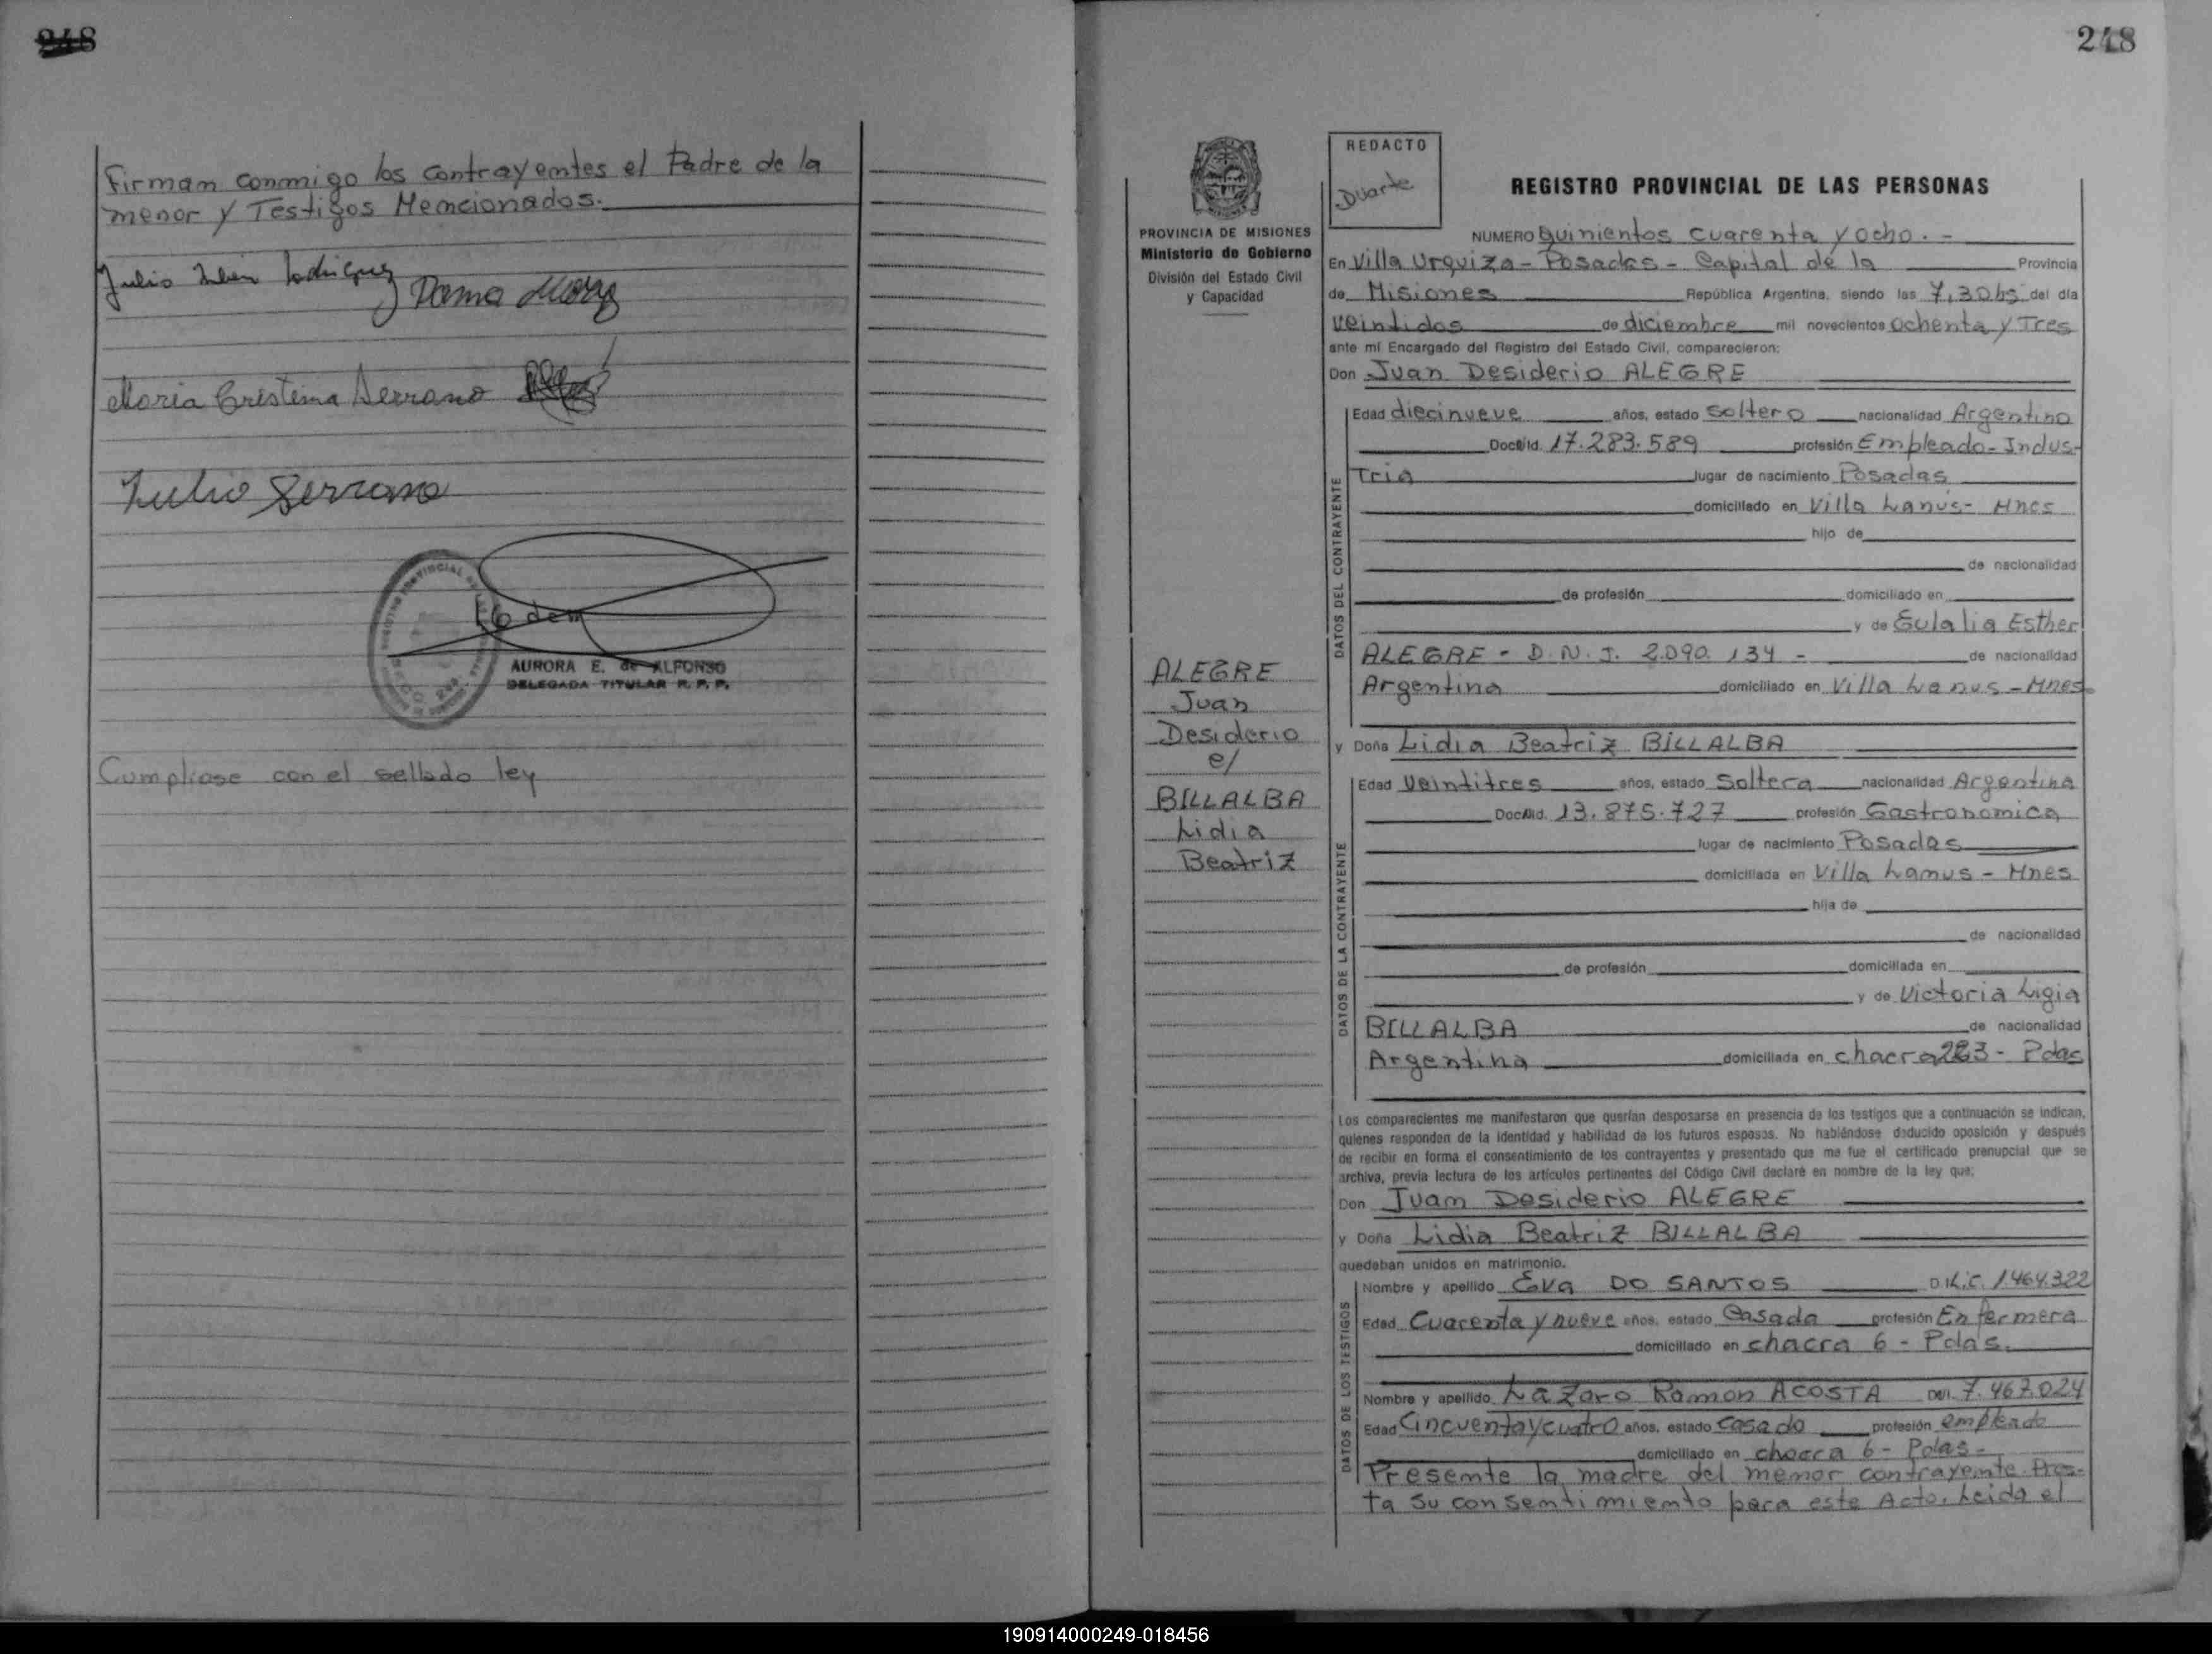 248
Firman conmigo los contrayentes el Padre de la
menor y Testigos Mencionados.
Julio
Maria Cristina Serrano
Julio Serrano
AURORA E. de ALFONSO
DELEGADA TITULAR R. P. P.
Cumpliose con el sellado ley
248
PROVINCIA DE MISIONES
Ministerio de Gobierno
División del Estado Civil
y Capacidad
ALEGRE
Juan
Desiderio
c/
BILLALBA
Lidia
Beatriz
REDACTO
Duarte
REGISTRO PROVINCIAL DE LAS PERSONAS
NUMERO Quinientos cuarenta y ocho. -
En Villa Urquiza - Posadas - Capital de la Provincia
de Misiones República Argentina, siendo las 7,30 hs del día
veintidos de diciembre mil novecientos ochenta y Tres
ante mí Encargado del Registro del Estado Civil, comparecieron:
Don Juan Desiderio ALEGRE
DATOS DEL CONTRAYENTE
Edad diecinueve años, estado soltero nacionalidad Argentino
Doc. Id. 17.283.589 profesión Empleado - Indus-
tria lugar de nacimiento Posadas
domiciliado en Villa Lanús - Mnes
hijo de
de nacionalidad
de profesión domiciliado en
y de Eulalia Esther
ALEGRE - D.N.I. 2.090.134 - de nacionalidad
Argentina domiciliado en Villa Lanus - Mnes
y Doña Lidia Beatriz BILLALBA
DATOS DE LA CONTRAYENTE
Edad Veintitres años, estado Soltera nacionalidad Argentina
Doc. Id. 13.875.727 profesión Gastronomica
lugar de nacimiento Posadas
domiciliada en Villa Lanus - Mnes
hija de
de nacionalidad
de profesión domiciliada en
y de Victoria Ligia
BILLALBA de nacionalidad
Argentina domiciliada en chacra - Pdas
Los comparecientes me manifestaron que querían desposarse en presencia de los testigos que a continuación se indican,
quienes responden de la identidad y habilidad de los futuros esposos. No habiéndose deducido oposición y después
de recibir en forma el consentimiento de los contrayentes y presentado que me fue el certificado prenupcial que se
archiva, previa lectura de los artículos pertinentes del Código Civil declaré en nombre de la ley que:
Don Juan Desiderio ALEGRE
y Doña Lidia Beatriz BILLALBA
quedaban unidos en matrimonio.
DATOS DE LOS TESTIGOS
Nombre y apellido Eva DO SANTOS L.C. 1.464.322
Edad Cuarenta y nueve años, estado Casada profesión Enfermera
domiciliado en chacra 6 - Pdas.
Nombre y apellido Lazaro Ramon ACOSTA DNI. 7.467.024
Edad Cincuenta y cuatro años, estado casado profesión empleado
domiciliado en chacra 6 - Pdas -
Presente la madre del menor contrayente Pres-
ta su consentimiento para este Acto. Leida el
190914000249-018456